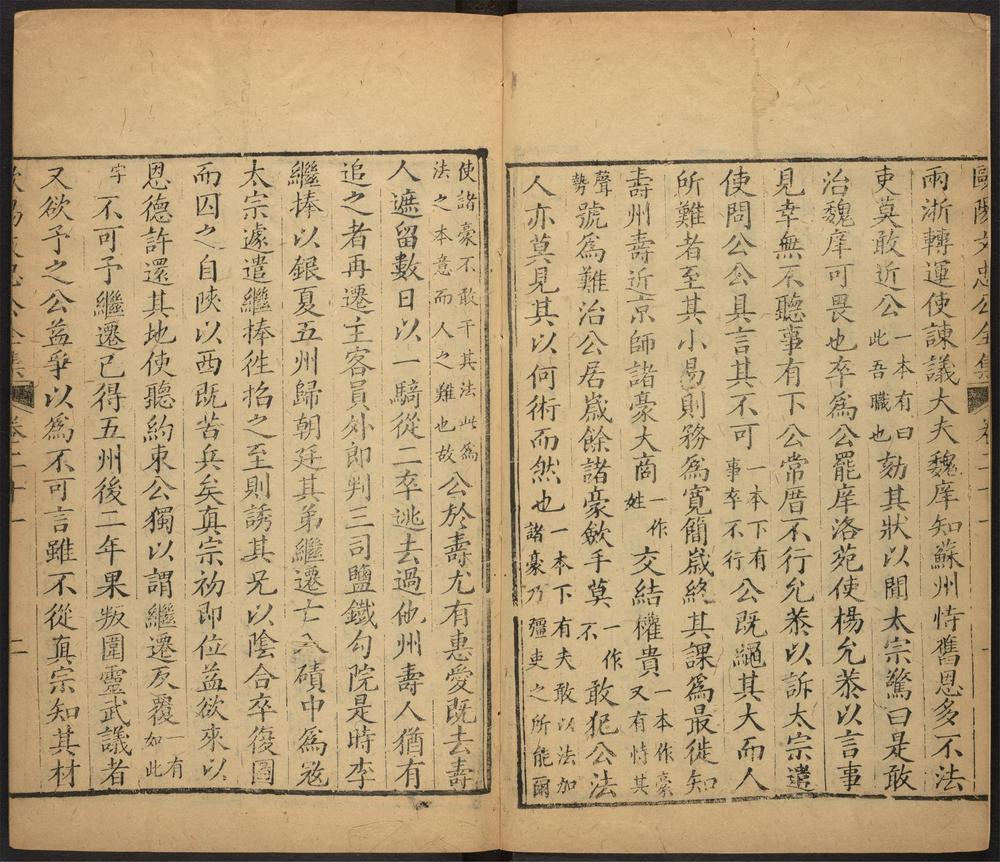 歐陽文忠公全集 卷二十一
兩浙轉運使諫議大夫魏庠知蘇州恃舊恩多不法
吏莫敢近公一本有曰此吾職也劾其狀以聞太宗驚曰是敢
治魏庠可畏也卒爲公罷庠洛苑使楊允恭以言事
見幸無不聽事有下公常厝不行允恭以訴太宗遣
使問公公具言其不可一本下有事卒不行公既繩其大而人
所難者至其小易則務爲寬簡歲終其課爲最徙知
壽州壽近京師諸豪大商一作姓交結權貴一本作豪又有恃其
聲勢號爲難治公居歲餘諸豪斂手莫一作不敢犯公法
人亦莫見其以何術而然也一本下有夫敢以法加諸豪乃彊吏之所能爾
使諸豪不敢干其法此爲法之本意而人之難也故公於壽尤有惠愛既去壽
人遮留數日以一騎從二卒逃去過他州壽人猶有
追之者再遷主客員外郎判三司鹽鐵勾院是時李
繼捧以銀夏五州歸朝廷其弟繼遷亡入磧中爲寇
太宗遽遣繼捧徃招之至則誘其兄以陰合卒復圖
而囚之自陝以西既苦兵矣真宗初即位益欲來以
恩德許還其地使聽約束公獨以謂繼遷反覆一有如此
字不可予繼遷已得五州後二年果叛圍靈武議者
又欲予之公益爭以爲不可言雖不從真宗知其材
歐陽文忠公全集 卷二十一 二